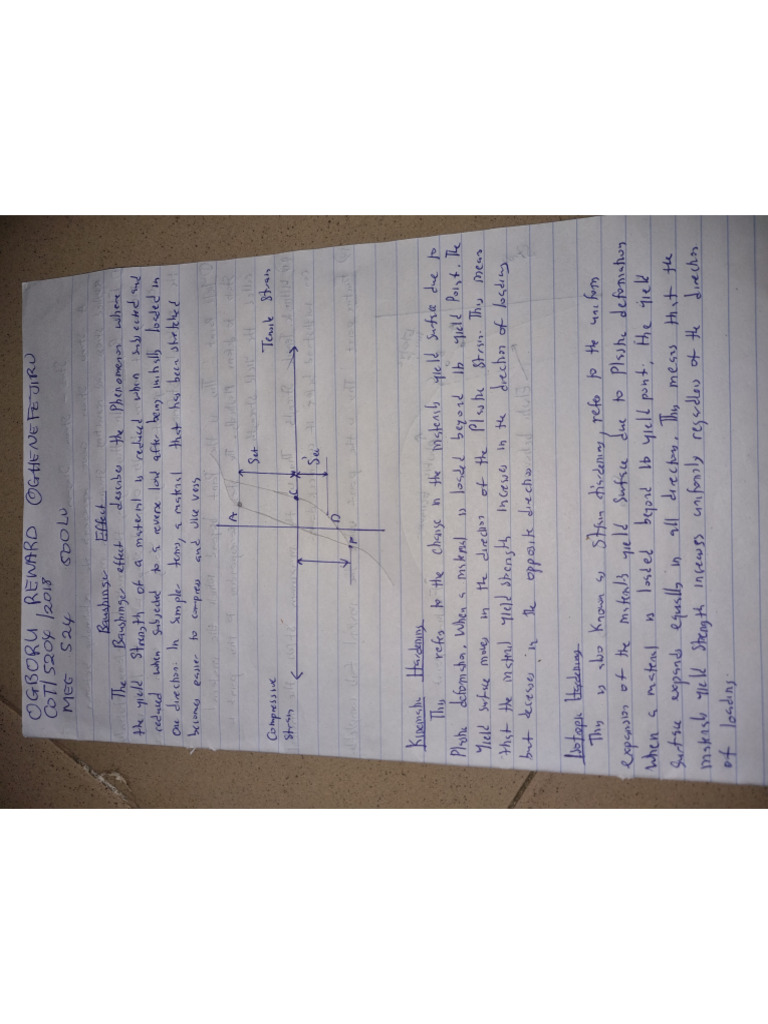 OGBORU REWARD OGHENEFEJIRO
COT/5204/2018
MEE 524 500LV
Baushinger Effect
The Baushinger effect describes the Phenomenon where
the yield Strength of a material is reduced when subjected and
reduced when subjected to a reverse load after being initially loaded in
one direction. In Simpler terms, a material that has been stretched
becomes easier to compress and vice versa
A
Set
Tensile Strain
C
Compressive
Strain
Sei
D
F
Kinematic Hardening
This refers to the change in the materials yield surface due to
Plastic deformation. When a material is loaded beyond its yield Point, the
yield surface moves in the direction of the Plastic Strain. This mean
that the material yield strength increases in the direction of loading
but decreases in the opposite direction.
Isotopic Hardening
This is also Known as Strain Hardening, refers to the uniform
expansion of the materials yield Surface due to Plastic deformation
When a material is loaded beyond its yield point, the yield
Surface expands equally in all direction. This means that the
materials yield Strength increases uniformly regardless of the direction
of loading.